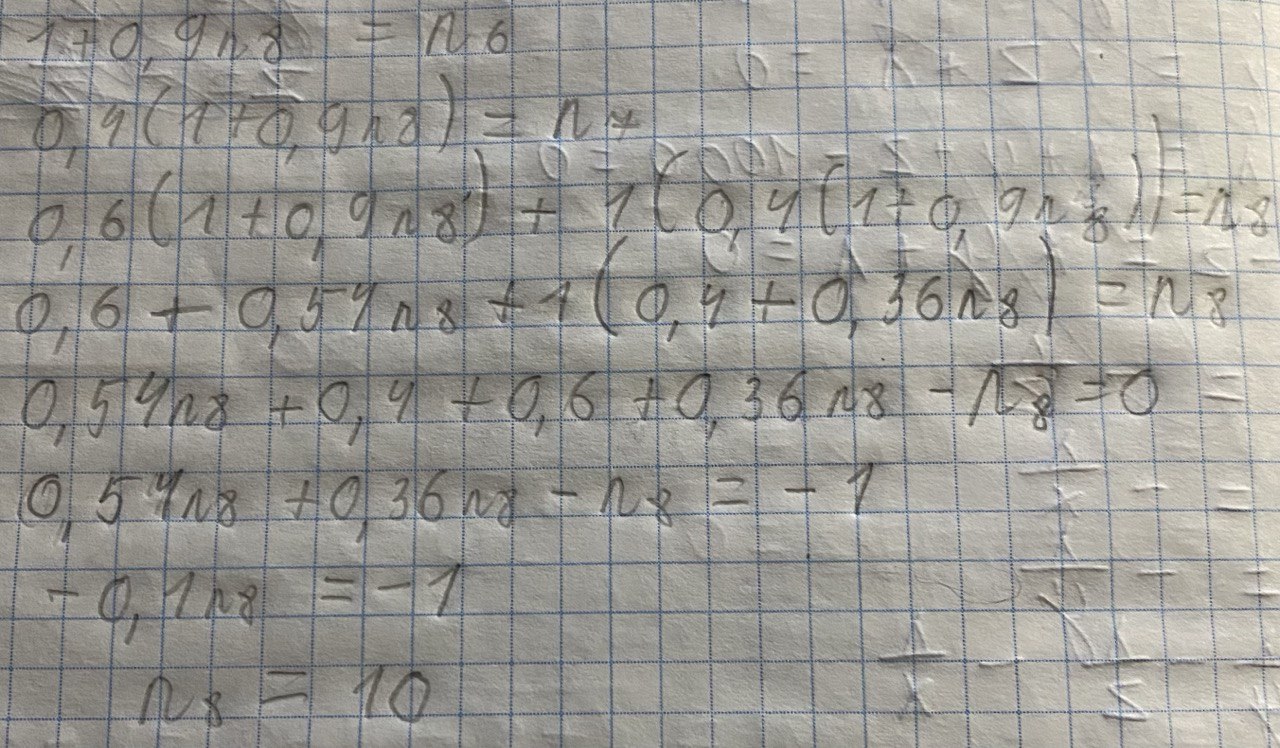 1+0,9n8 = n6
0,4(1+0,9n8) = n7
0,6(1+0,9n8) + 1(0,4(1+0,9n8)) = n8
0,6 + 0,54n8 + 1(0,4+0,36n8) = n8
0,54n8 + 0,4 + 0,6 + 0,36n8 - n8 = 0
0,54n8 + 0,36n8 - n8 = -1
-0,1n8 = -1
n8 = 10